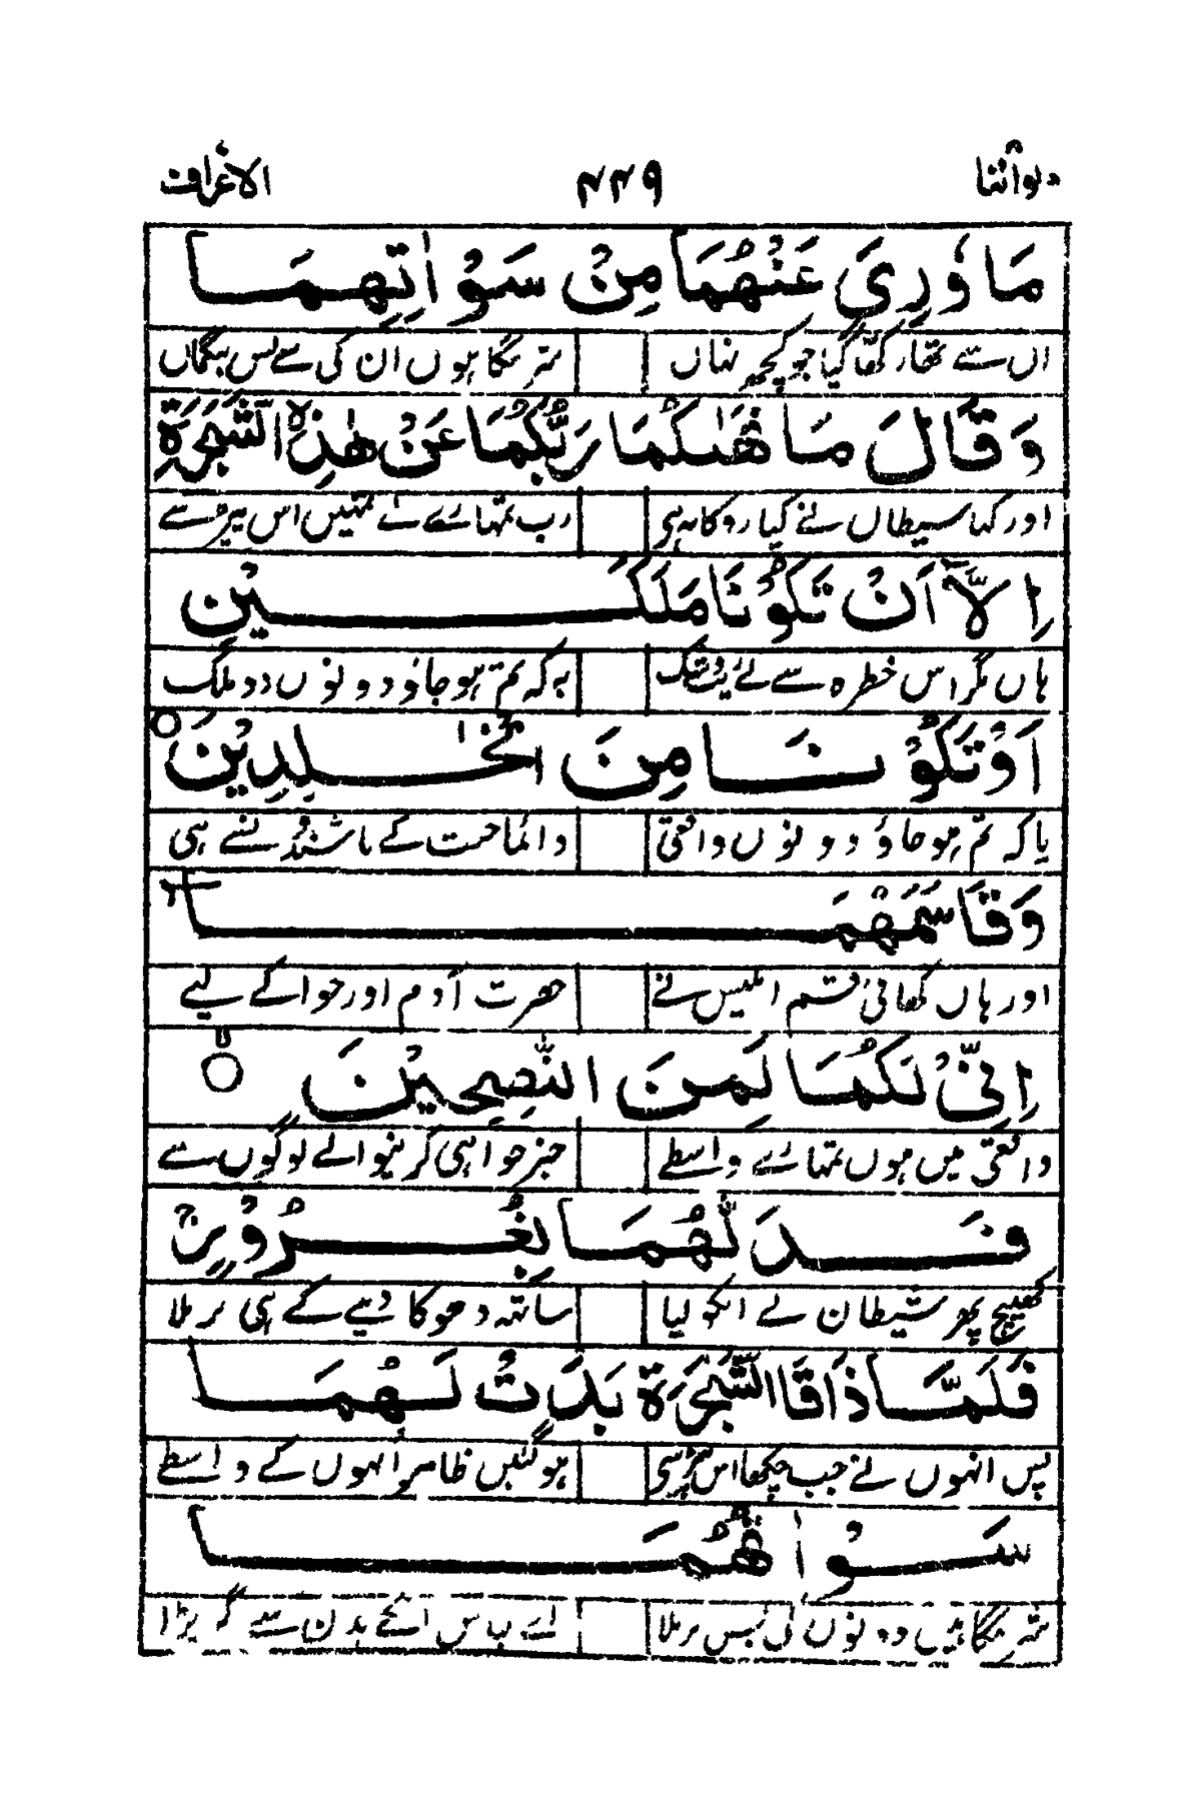 ولو اننا ۴۴۹ الاعراف
مَا وٗرِیَ عَنْهُمَا مِنْ سَوْاٰتِهِمَا
ان سے تھا رکھا گیا جو کچھ نہاں ستر گاہوں ان کی سے بس بیگماں
وَقَالَ مَا نَهٰىكُمَا رَبُّكُمَا عَنْ هٰذِهِ الشَّجَرَةِ
اور کہا شیطاں نے کیا روکا ہے ہی رب تمہارے نے تمہیں اس پیڑ سے
اِلَّاۤ اَنْ تَكُوْنَا مَلَكَيْنِ
ہاں مگر اس خطرہ سے لئے یشک بہ کہ تم ہو جاؤ دونوں دو ملک
اَوْ تَكُوْنَا مِنَ الْخٰلِدِيْنَ
یا کہ تم ہو جاؤ دونوں واقعی دائما جنت کے باشندے بنے ہی
وَقَاسَمَهُمَا
اور ہاں کھائی قسم ابلیس نے حضرت آدم اور حوا کے لیے
اِنِّیْ لَكُمَا لَمِنَ النّٰصِحِيْنَ
واقعی میں ہوں تمہارے واسطے خیر خواہی کرنیوالے لوگوں سے
فَدَلّٰهُمَا بِغُرُوْرٍ
کھینچ پھر شیطان نے انکو لیا ساتھ دھوکا دیے کے ہی برملا
فَلَمَّا ذَاقَا الشَّجَرَةَ بَدَتْ لَهُمَا
پس انہوں نے جب چکھا اس پیڑ سے ہو گئیں ظاہر انہوں کے واسطے
سَوْاٰتُهُمَا
ستر گاہیں دونوں کی بس برملا لباس انکے بدن سے گر پڑا